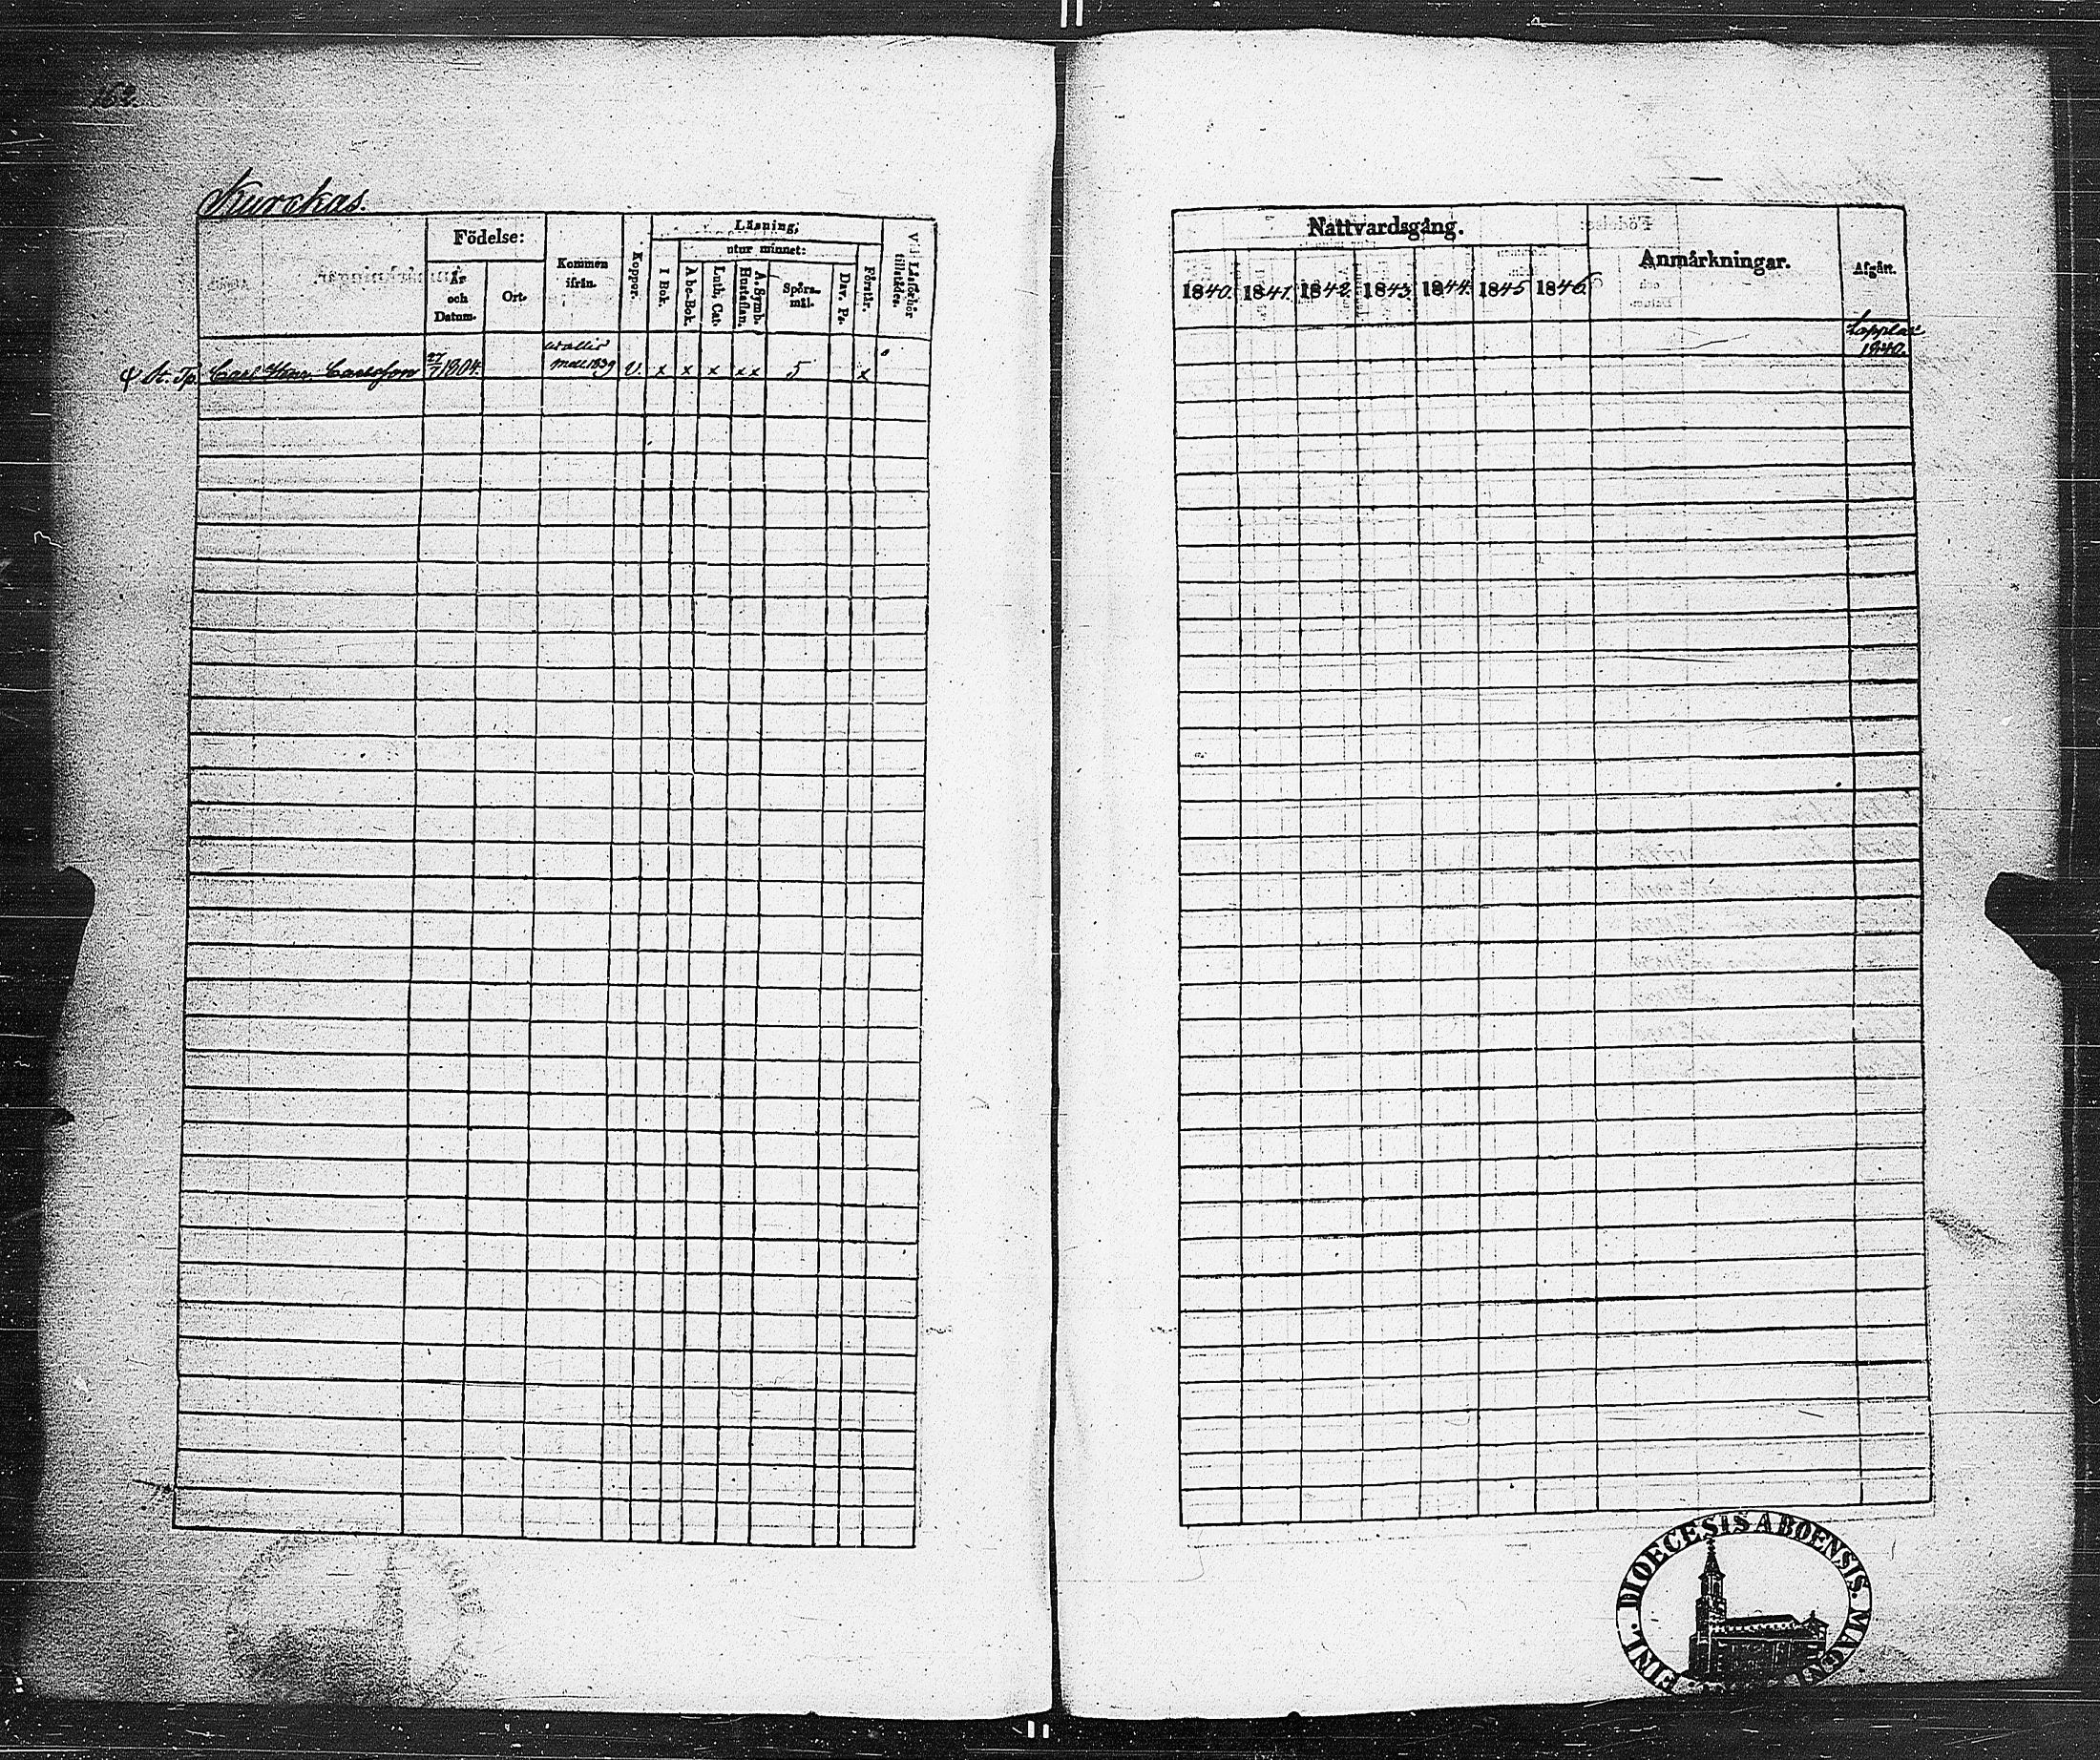 162.
Kurckas.
Födelse:
År och Datum.
Ort.
Kommen ifrån.
Koppor.
Läsning,
I Bok.
utur minnet:
Abc-Bok.
Luth. Cat.
A. Symb. Hustaflan.
Spörsmål.
Dav. Ps.
Förstår.
Vid Läsförhör tillstädes.
St. Tp. Carl Henr. Carlsson 27/7 1804. 1839 v. x x x x x 5 x
Nattvardsgång.
1840. 1841. 1842. 1843. 1844. 1845 1846.
Anmärkningar.
Afgått.
Lopplax
1840.
FINL. DIOECESIS ABOENSIS. MAGN